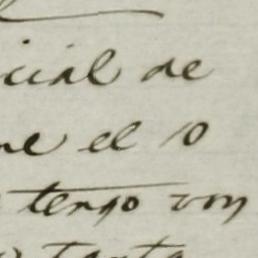 cial de
ne el 10
tengo con
tanto